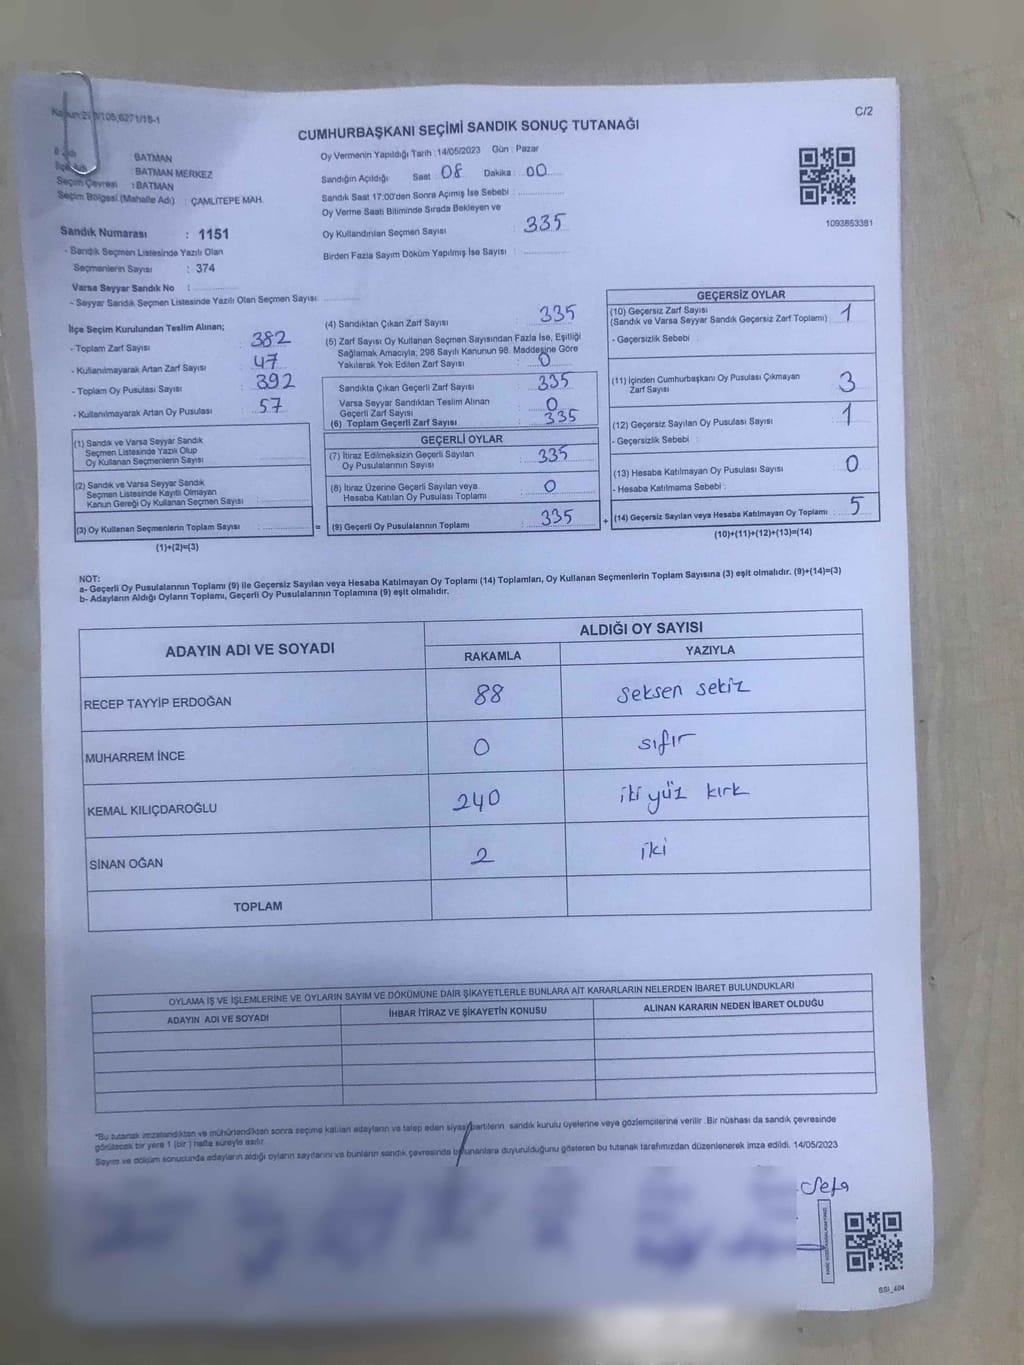 C/2
CUMHURBAŞKANI SEÇİMİ SANDIK SONUÇ TUTANAĞI
: BATMAN
: BATMAN MERKEZ
Seçim Çevresi : BATMAN
Seçim Bölgesi (Mahalle Adı) : ÇAMLITEPE MAH.
Oy Vermenin Yapıldığı Tarih : 14/05/2023 Gün : Pazar
Sandığın Açıldığı Saat : 08 Dakika : 00
Sandık Saat 17:00'den Sonra Açımış İse Sebebi :
Oy Verme Saati Bitiminde Sırada Bekleyen ve
Oy Kullandırılan Seçmen Sayısı : 335
Birden Fazla Sayım Döküm Yapılmış İse Sayısı :
1093853381
Sandık Numarası : 1151
- Sandık Seçmen Listesinde Yazılı Olan
Seçmenlerin Sayısı : 374
Varsa Seyyar Sandık No :
- Seyyar Sandık Seçmen Listesinde Yazılı Olan Seçmen Sayısı:
İlçe Seçim Kurulundan Teslim Alınan;
- Toplam Zarf Sayısı : 382
- Kullanılmayarak Artan Zarf Sayısı : 47
- Toplam Oy Pusulası Sayısı : 392
- Kullanılmayarak Artan Oy Pusulası : 57
(1) Sandık ve Varsa Seyyar Sandık
Seçmen Listesinde Yazılı Olup
Oy Kullanan Seçmenlerin Sayısı :
(2) Sandık ve Varsa Seyyar Sandık
Seçmen Listesinde Kayıtlı Olmayan
Kanun Gereği Oy Kullanan Seçmen Sayısı :
(3) Oy Kullanan Seçmenlerin Toplam Sayısı : =
(1)+(2)=(3)
(4) Sandıktan Çıkan Zarf Sayısı : 335
(5) Zarf Sayısı Oy Kullanan Seçmen Sayısından Fazla İse, Eşitliği
Sağlamak Amacıyla; 298 Sayılı Kanunun 98. Maddesine Göre
Yakılarak Yok Edilen Zarf Sayısı : 0
Sandıkta Çıkan Geçerli Zarf Sayısı : 335
Varsa Seyyar Sandıktan Teslim Alınan
Geçerli Zarf Sayısı : 0
(6) Toplam Geçerli Zarf Sayısı : 335
GEÇERLİ OYLAR
(7) İtiraz Edilmeksizin Geçerli Sayılan
Oy Pusulalarının Sayısı : 335
(8) İtiraz Üzerine Geçerli Sayılan veya
Hesaba Katılan Oy Pusulası Toplamı : 0
(9) Geçerli Oy Pusulalarının Toplamı : 335 +
GEÇERSİZ OYLAR
(10) Geçersiz Zarf Sayısı
(Sandık ve Varsa Seyyar Sandık Geçersiz Zarf Toplamı) : 1
- Geçersizlik Sebebi :
(11) İçinden Cumhurbaşkanı Oy Pusulası Çıkmayan
Zarf Sayısı : 3
(12) Geçersiz Sayılan Oy Pusulası Sayısı : 1
- Geçersizlik Sebebi :
(13) Hesaba Katılmayan Oy Pusulası Sayısı : 0
- Hesaba Katılmama Sebebi :
(14) Geçersiz Sayılan veya Hesaba Katılmayan Oy Toplamı : 5
(10)+(11)+(12)+(13)=(14)
NOT:
a- Geçerli Oy Pusulalarının Toplamı (9) ile Geçersiz Sayılan veya Hesaba Katılmayan Oy Toplamı (14) Toplamları, Oy Kullanan Seçmenlerin Toplam Sayısına (3) eşit olmalıdır. (9)+(14)=(3)
b- Adayların Aldığı Oyların Toplamı, Geçerli Oy Pusulalarının Toplamına (9) eşit olmalıdır.
ADAYIN ADI VE SOYADI
ALDIĞI OY SAYISI
RAKAMLA YAZIYLA
RECEP TAYYİP ERDOĞAN 88 seksen sekiz
MUHARREM İNCE 0 sıfır
KEMAL KILIÇDAROĞLU 240 iki yüz kırk
SİNAN OĞAN 2 iki
TOPLAM
OYLAMA İŞ VE İŞLEMLERİNE VE OYLARIN SAYIM VE DÖKÜMÜNE DAİR ŞİKAYETLERLE BUNLARA AİT KARARLARIN NELERDEN İBARET BULUNDUKLARI
ADAYIN ADI VE SOYADI İHBAR İTİRAZ VE ŞİKAYETİN KONUSU ALINAN KARARIN NEDEN İBARET OLDUĞU
*Bu tutanak imzalandıktan ve mühürlendikten sonra seçime katılan adayların ve talep eden siyasi partilerin sandık kurulu üyelerine veya gözlemcilerine verilir. Bir nüshası da sandık çevresinde
görülecek bir yere 1 (bir) hafta süreyle asılır.
Sayım ve döküm sonucunda adayların aldığı oyların sayılarını ve bunların sandık çevresinde bulunanlara duyurulduğunu gösteren bu tutanak tarafımızdan düzenlenerek imza edildi. 14/05/2023
Sefa
SSI_404